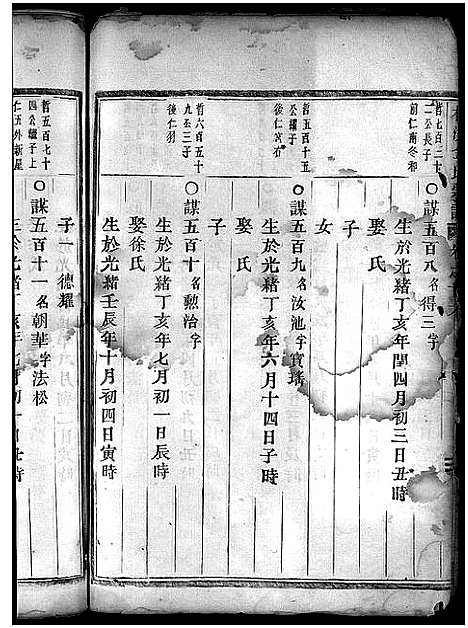 哲七百三十
二公長子
前仁南冬和
○謀五百八名得三字
生於光緒丁亥年閏四月初三日丑時
娶 氏
子
女
哲五百十五
公繼子
後仁
○謀五百九名汝池字寶瑤
生於光緒丁亥年六月十四日子時
娶 氏
子
哲六百五十
九公三子
後仁
○謀五百十名勲治字
生於光緒丁亥年七月初一日辰時
娶徐氏
生於光緒壬辰年十月初四日寅時
子一 德耀
哲五百七十
四公繼子上
仁五外新屋
○謀五百十一名朝華字法松